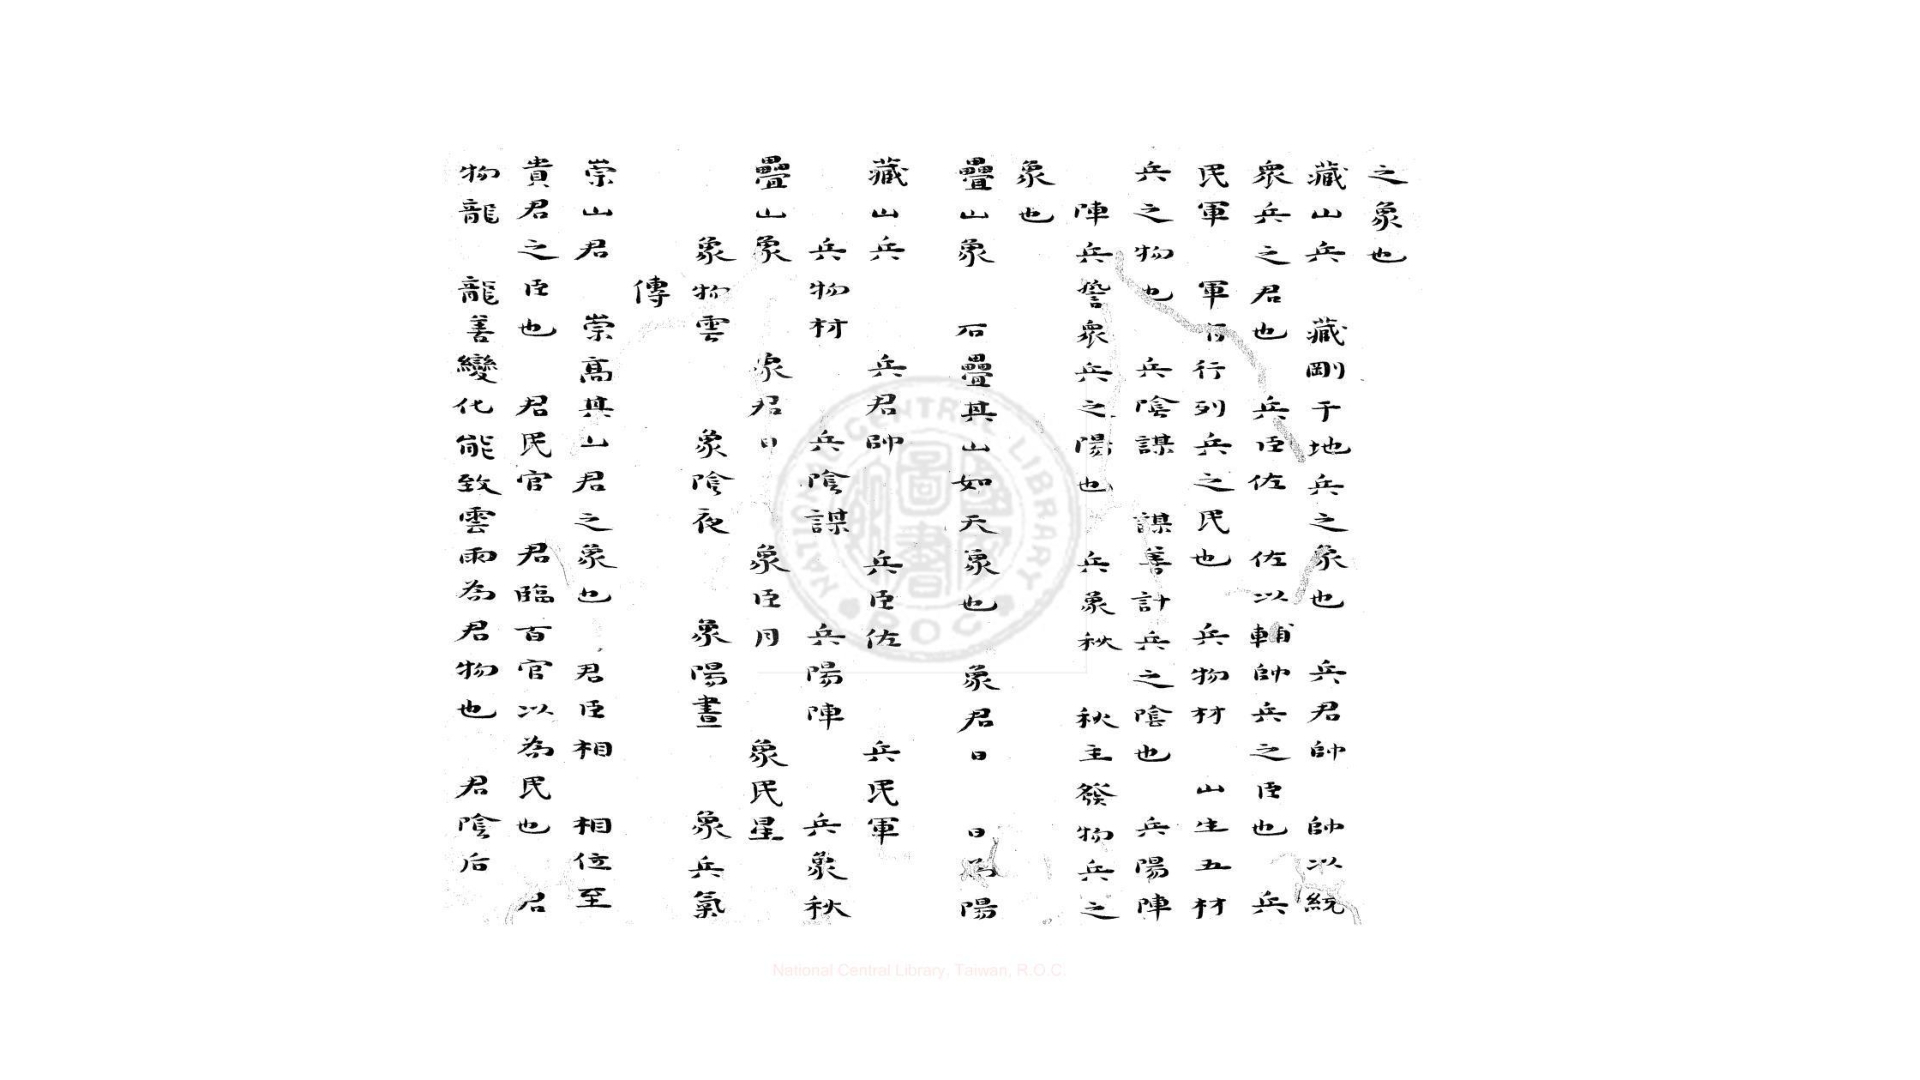 之象也
藏山兵　藏剛于地兵之象也　兵君帥　帥以統
衆兵之君也　兵臣佐　佐以輔帥兵之臣也　兵
民軍　軍有行列兵之民也　兵物材　山生五材
兵之物也　兵陰謀　謀善計兵之陰也　兵陽陣
陣兵誓衆兵之陽也　兵象秋　秋主發物兵之
象也
疊山象　石疊其山如天象也　象君日　日為陽
藏山兵　兵君帥　兵臣佐　兵民軍
兵物材　兵陰謀　兵陽陣　兵象秋
疊山象　象君日　象臣月　象民星
象物雲　象陰夜　象陽晝　象兵氣
傳
崇山君　崇高其山君之象也　君臣相　相位至
貴君之臣也　君民官　君臨百官以為民也　君
物龍　龍善變化能致雲雨為君物也　君陰后
NATIONAL CENTRAL LIBRARY
ROC
國家圖書館
National Central Library, Taiwan, R.O.C.